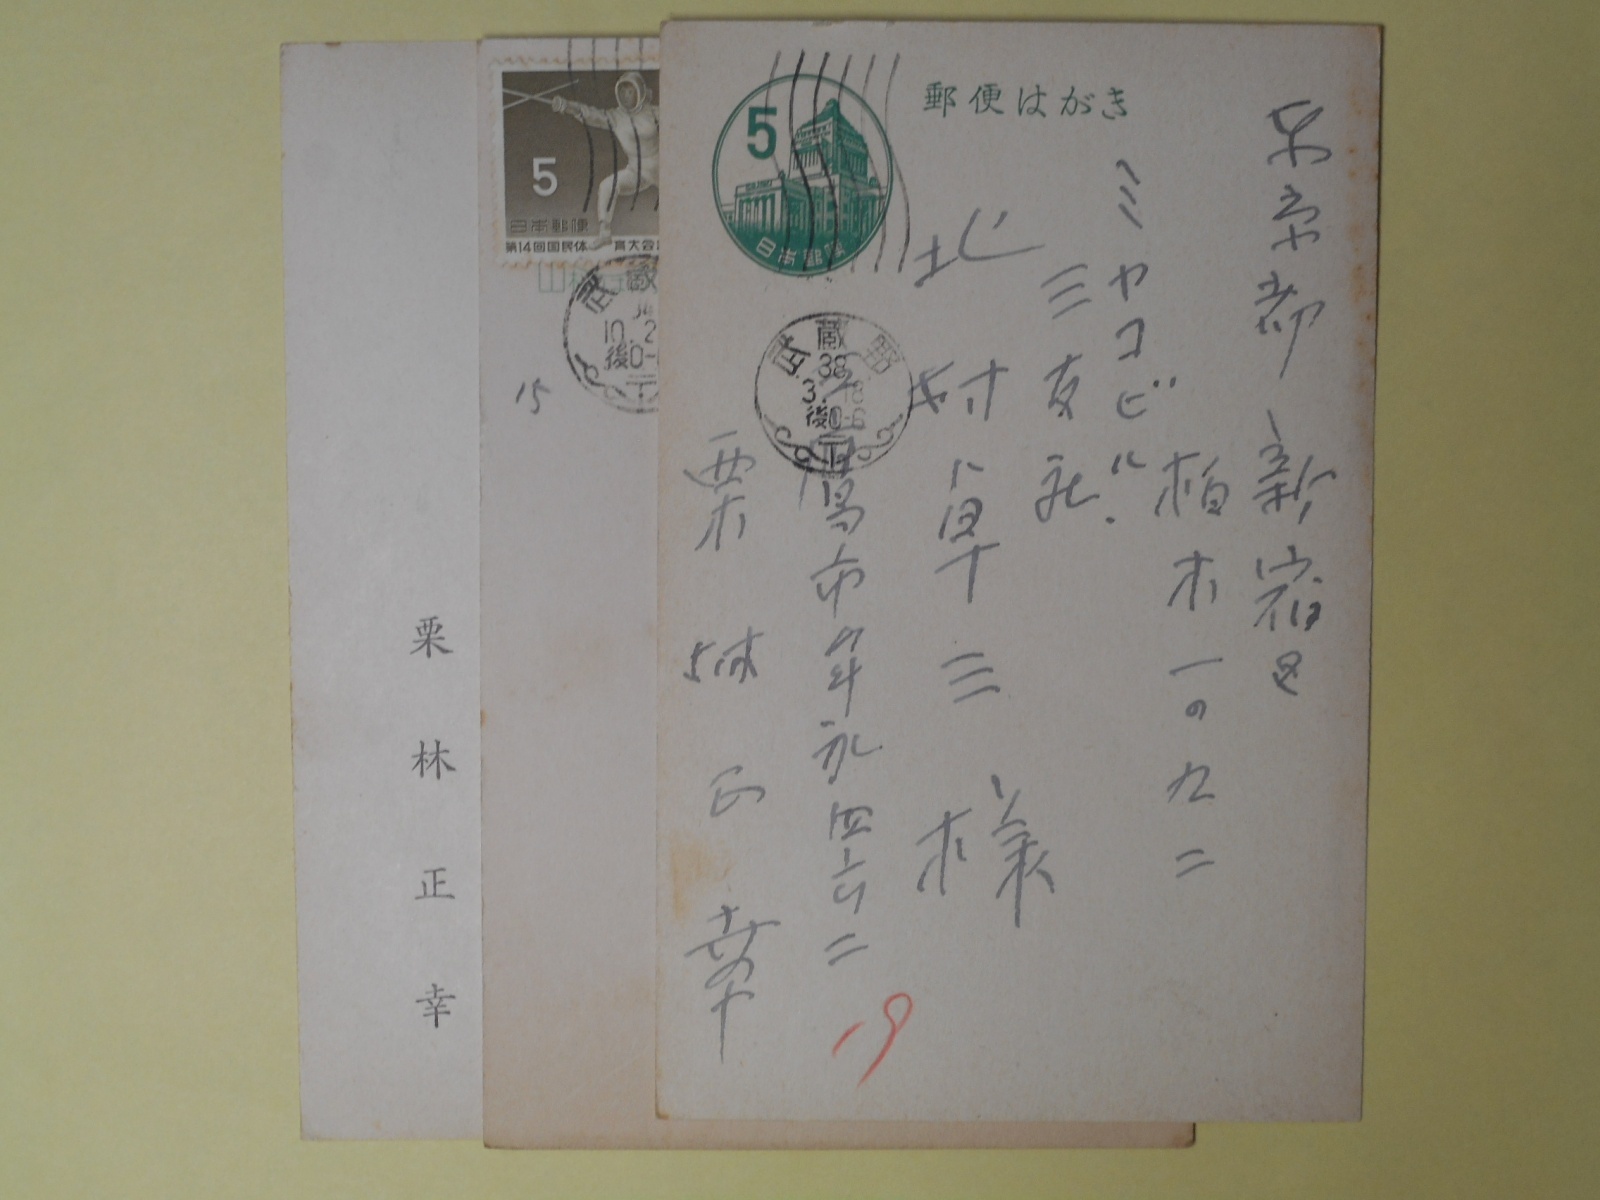 郵便はがき
5
日本郵便
武蔵野
38
3.18
後0-6
東京都新宿区
柏木一の九二
ミヤコビル
三友社
北村卓三様
市牟礼四六二
栗林正幸
19
5
日本郵便
第14回国民体育大会
武蔵
10.2
後0-
15
栗林正幸